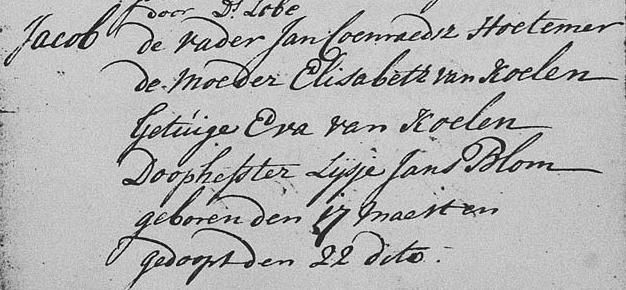 door Ds. Lobe
Jacob de vader Jan Coenraedsz Hoetemer
de Moeder Elisabeth van Koelen
Getúige Eva van Koelen
Doophefster Lijsje Jans Blom
geboren den 17 Maert en
gedoopt den 22 dito.